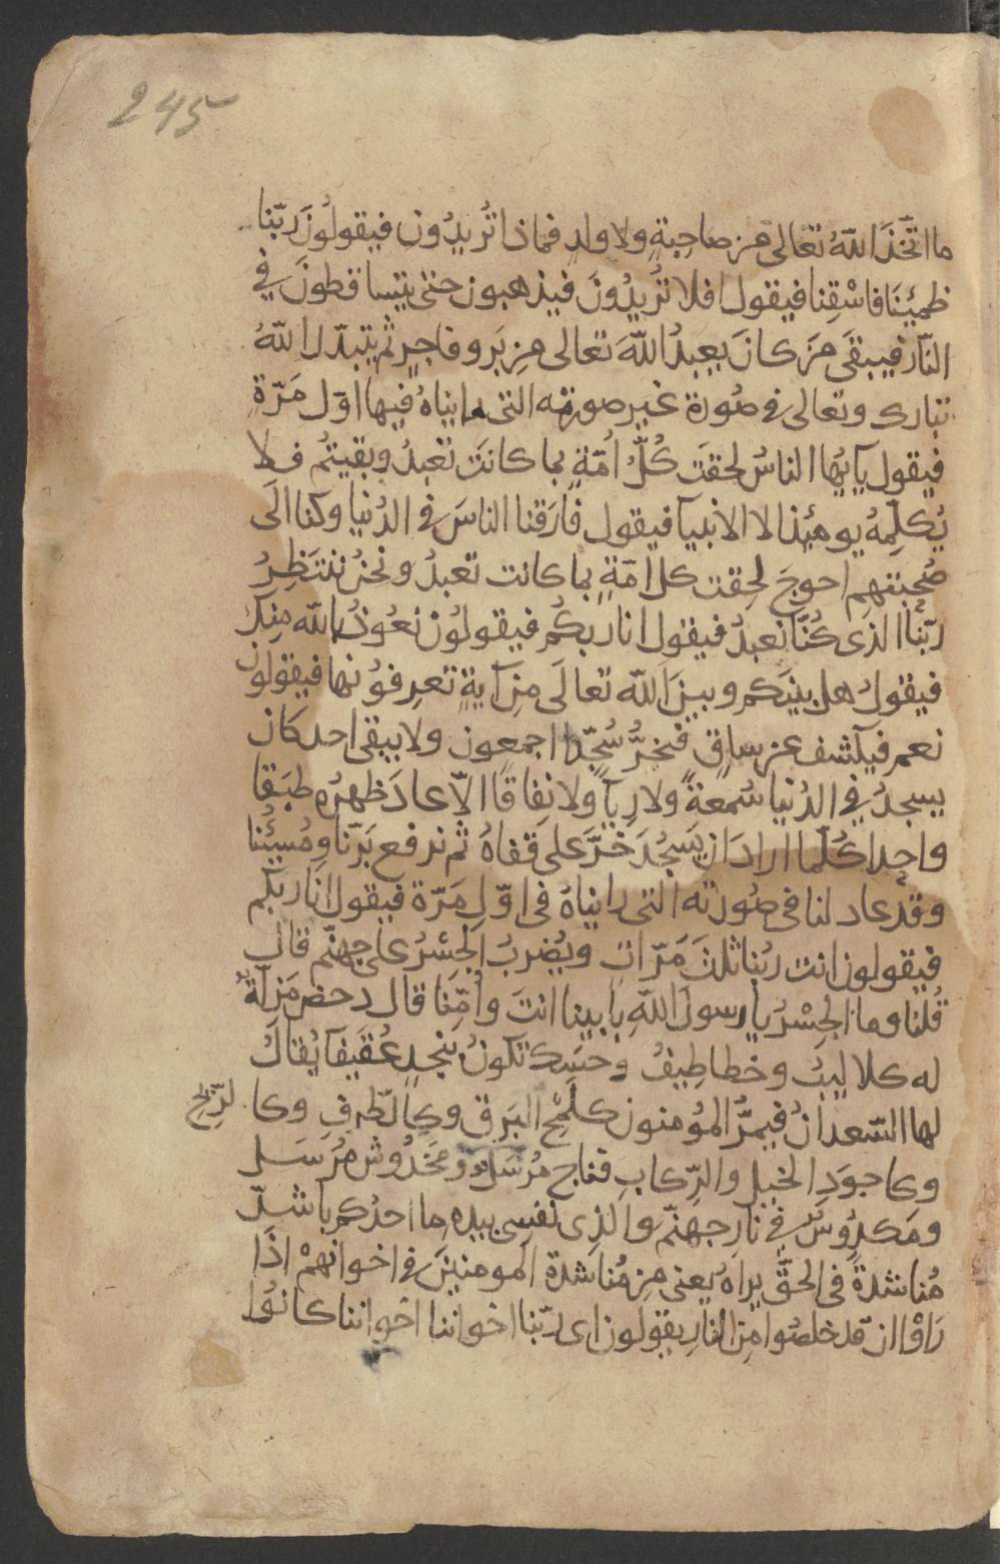 245
ما اتّخَذَ اللّهُ تعالى من صاحِبةٍ ولا ولدٍ فماذا تُريدُون فيقولُونَ ربّنا
ظمِئنَا فاسْقِنا فيقول افلا تُريدُونَ فيذهبون حتى يتساقطونَ في
النّار فيبقَى مَن كانَ يعبدُ اللّهَ تعالى مِن بَرٍ وفاجرٍ ثم يتبدّل اللّهُ
تبارك وتعالى في صُورة غير صورته التى رايناهُ فيها اوّل مَرّةٍ
فيقول يآيّها الناسُ لحقَت كُلُّ اُمّةٍ بما كانَت تعبدُ وبقيتُم فلا
يُكلِّمهُ يومئِذ الا الانبيآ فيقول فارَقنا الناسَ في الدُنيا وكنا الَى
صُحبتهم احوجَ لحِقت كل امّةٍ بما كانت تعبدُ ونحنُ ننتَظِرُ
ربّنا الذى كُنَّا نعبدُ فيقول انا ربكُم فيقولوُن نعُوذُ باللّه مِنكَ
فيقولُ هل بينكم وبينَ اللّه تعالَى مِن آيةٍ تعرِفوُنها فيقولون
نعم فيكشف عن ساقٍ فنخرُّ سُجّدًا اجمعون ولا يبقى احد كان
يسجدُ في الدُنيا سُمعةً ولا ريآ ولا نِفاقًا الاّ عادَ ظهرُه طبَقا
واحِدا كُلّما ارادَ ان يسجُدَ خَرَّ على قفاهُ ثم نرفع بَرّنا ومُسِئُنا
وقد عاد لنا فى صُورته التى رايناهُ فى اوّلِ مَرّة فيقول انا ربكم
فيقولون انت ربّنا ثلثَ مَرّاتٍ ويُضربُ الجسْرُ على جهنّم قال
قُلنا وما الجِسْرُ يا رسولَ اللّهِ بابينا انتَ واُمّنا قال دحض مَزلّةٌ
له كلاليبُ وخطاطِيفُ وحسَكٌ تكونُ بنجدٍ عُقَيفآ يُقالُ
لها السّعدانُ فيمرُّ المؤمنون كلَمْحِ البَرق وكالطّرفِ وكا لرّيح
وكاجوَدِ الخيلِ والرّكابِ فناجٍ مُرسَلٌ ومَخدُوش مُرسَل
ومَكدُوسٌ في نار جهنّم والذى نفسِى بيدهِ ما احدُكم باشدّ
مُناشدةً فى الحقِّ يراهُ يعنى مِن مُناشدة المومنينَ في اخوانهمْ اذَا
رَاوْا ان قد خلصُوا مِن النار يقولون اى ربّنا اخواننا اخواننا كانُوا